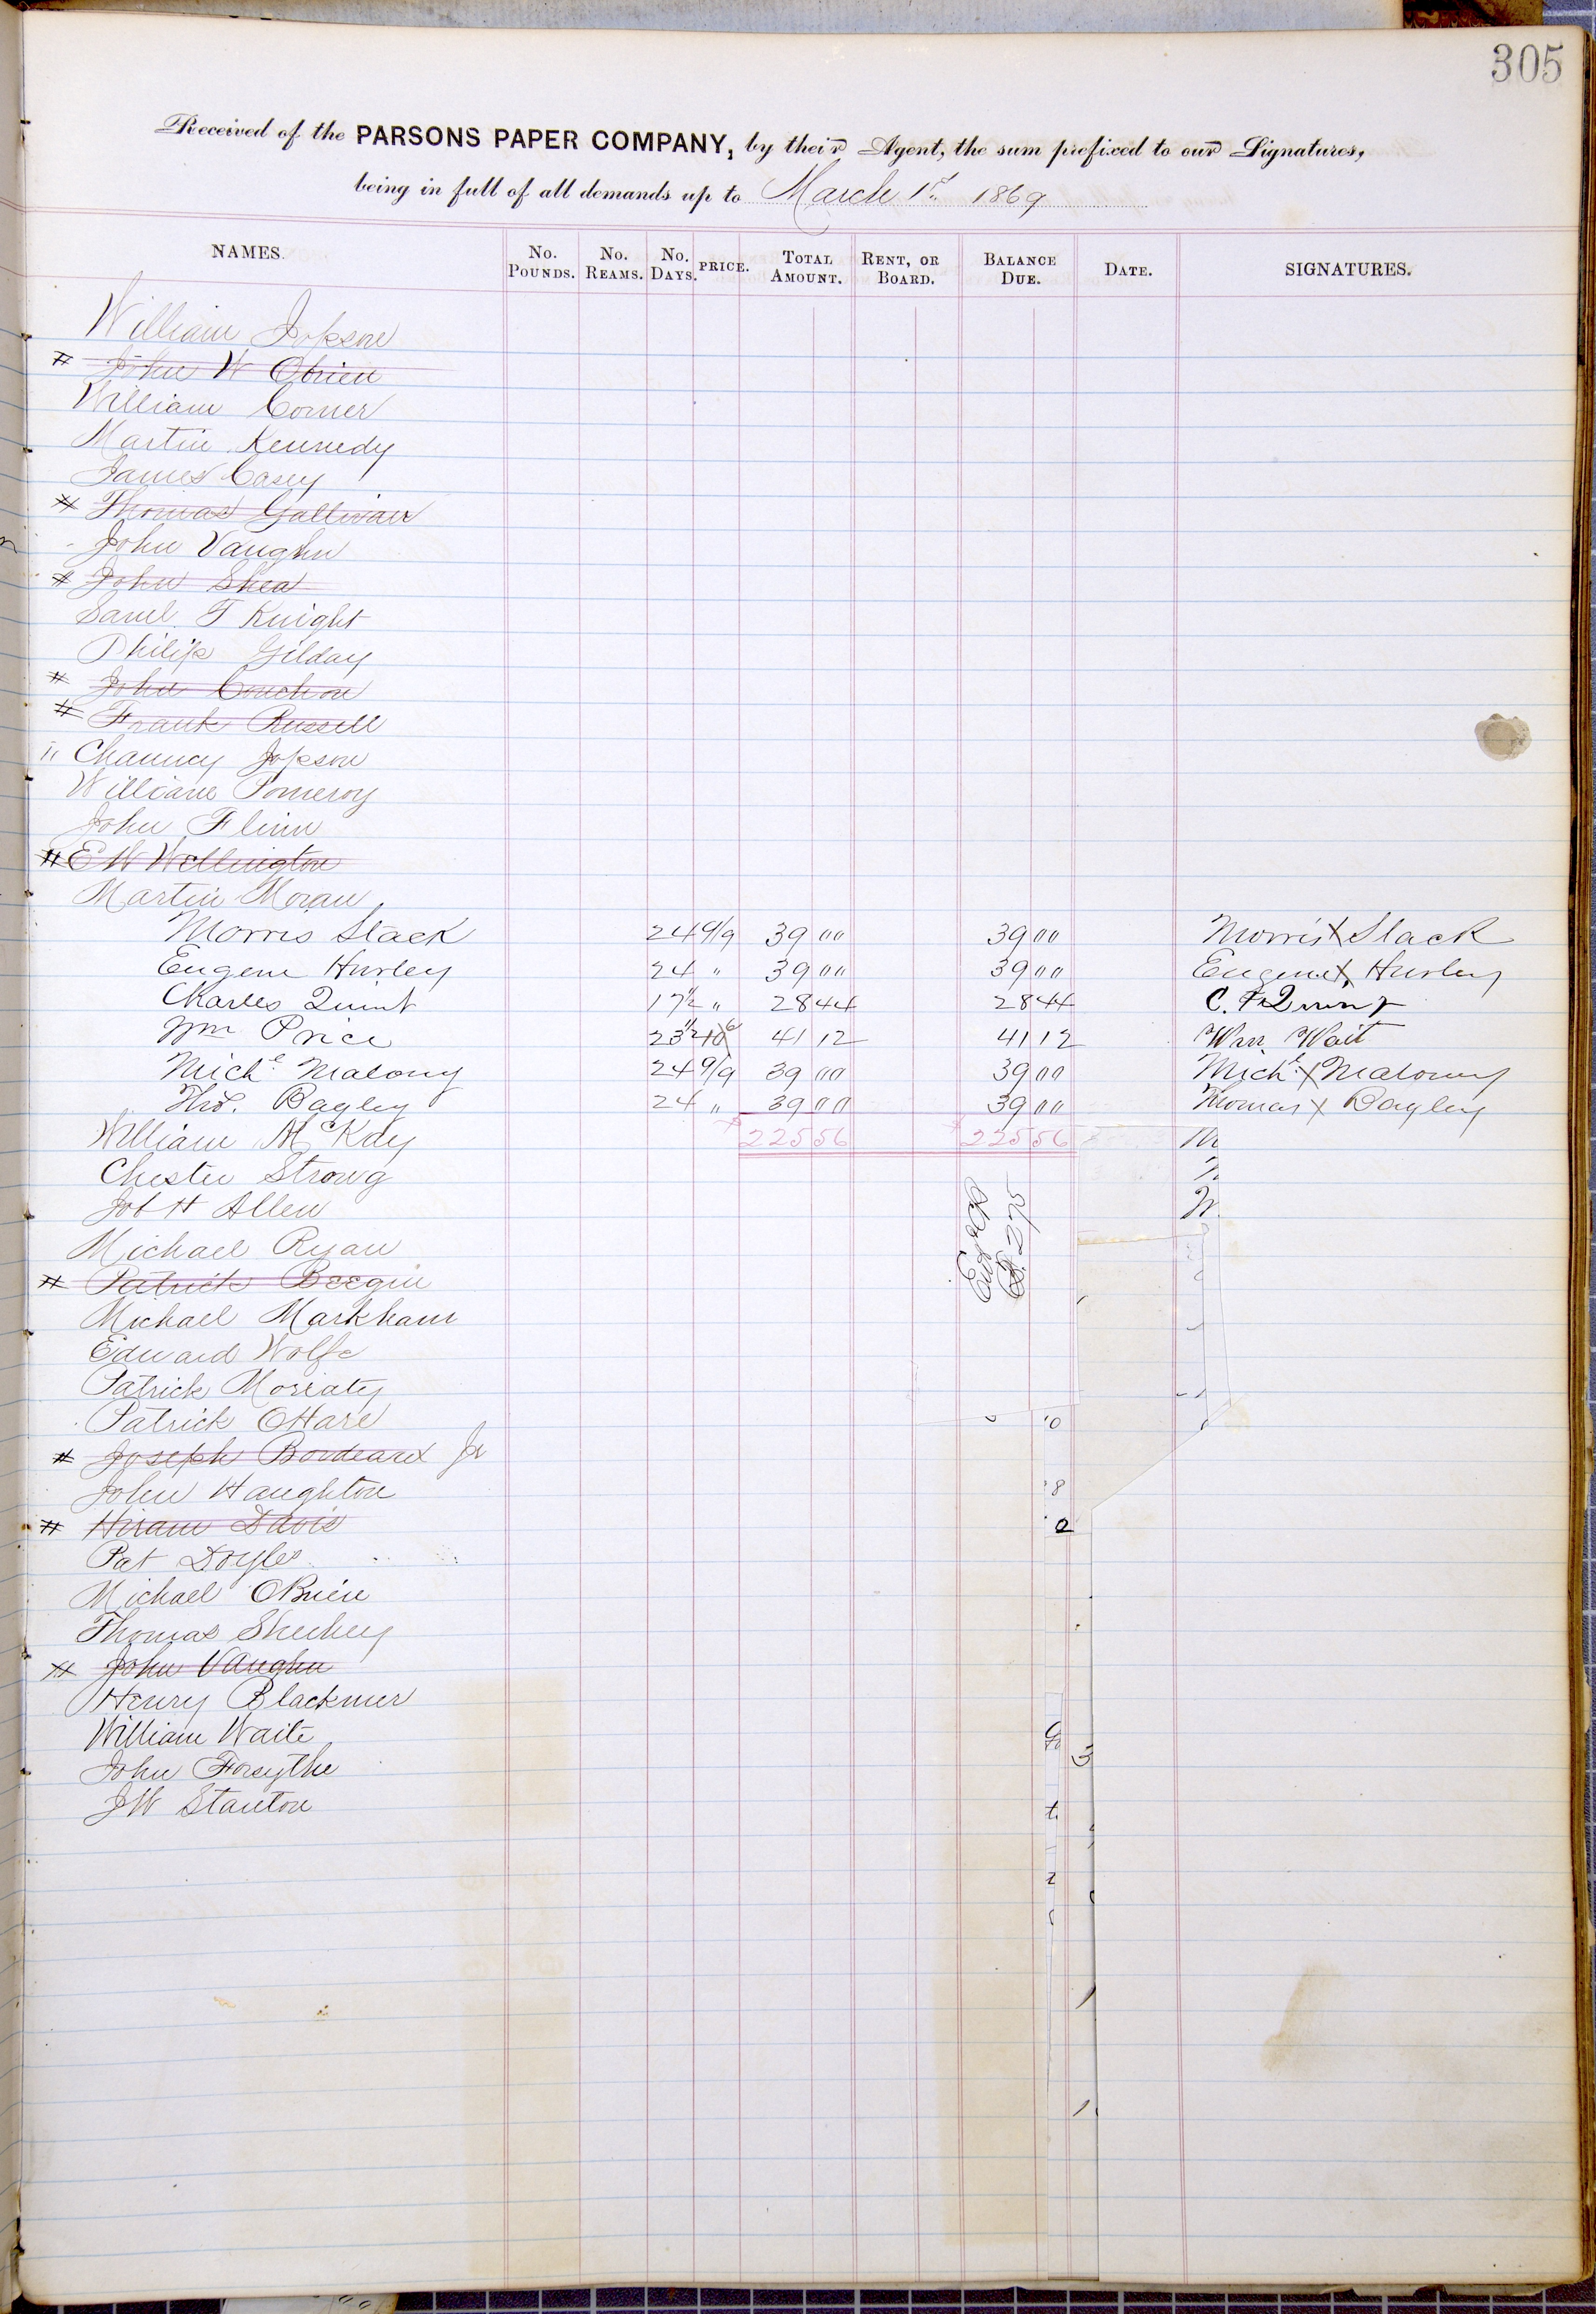 305
Received of the PARSONS PAPER COMPANY, by their Agent, the sum prefixed to our Signatures,
being in full of all demands up to March 1st 1869
NAMES. No. POUNDS. No. REAMS. No. DAYS. PRICE. TOTAL AMOUNT. RENT, OR BOARD. BALANCE DUE. DATE. SIGNATURES.
William Jopson
John W Obrien
William Comer
Martin Kennedy
James Casey
Thomas Gallivan
John Vaughn
John Shea
Saml. T Knight
Philip Gilday
John Couchon
Frank Russell
Chauncy Jopson
William Pomeroy
John Flinn
E W Wellington
Martin Moran
Morris Slack 24 9/9 39 00 39 00 Morris X Slack
Eugene Hurley 24 " 39 00 39 00 Eugene X Hurley
Charles Quint 17 1/2 " 28 44 28 44 C. F Quint
Wm Price 23 1/2 10/6 41 12 41 12 Wm Wait
Michl Malony 24 9/9 39 00 39 00 Michl X Maloney
Tho. Bagley 24 " 39 00 39 00 Thomas X Bagley
William McKay 225 56 225 56
Chester Strong
Job H Allen
Michael Ryan
Patrick Beegin
Michael Markham
Edward Wolfe
Patrick Moriaty
Patrick OHare
Joseph Bordeaux Jr
John Haughton
Hiram Davis
Pat Doyle
Michael OBrien
Thomas Sheehey
John Vaughn
Henry Blackmer
William Waite
John Forsythe
J W Stanton